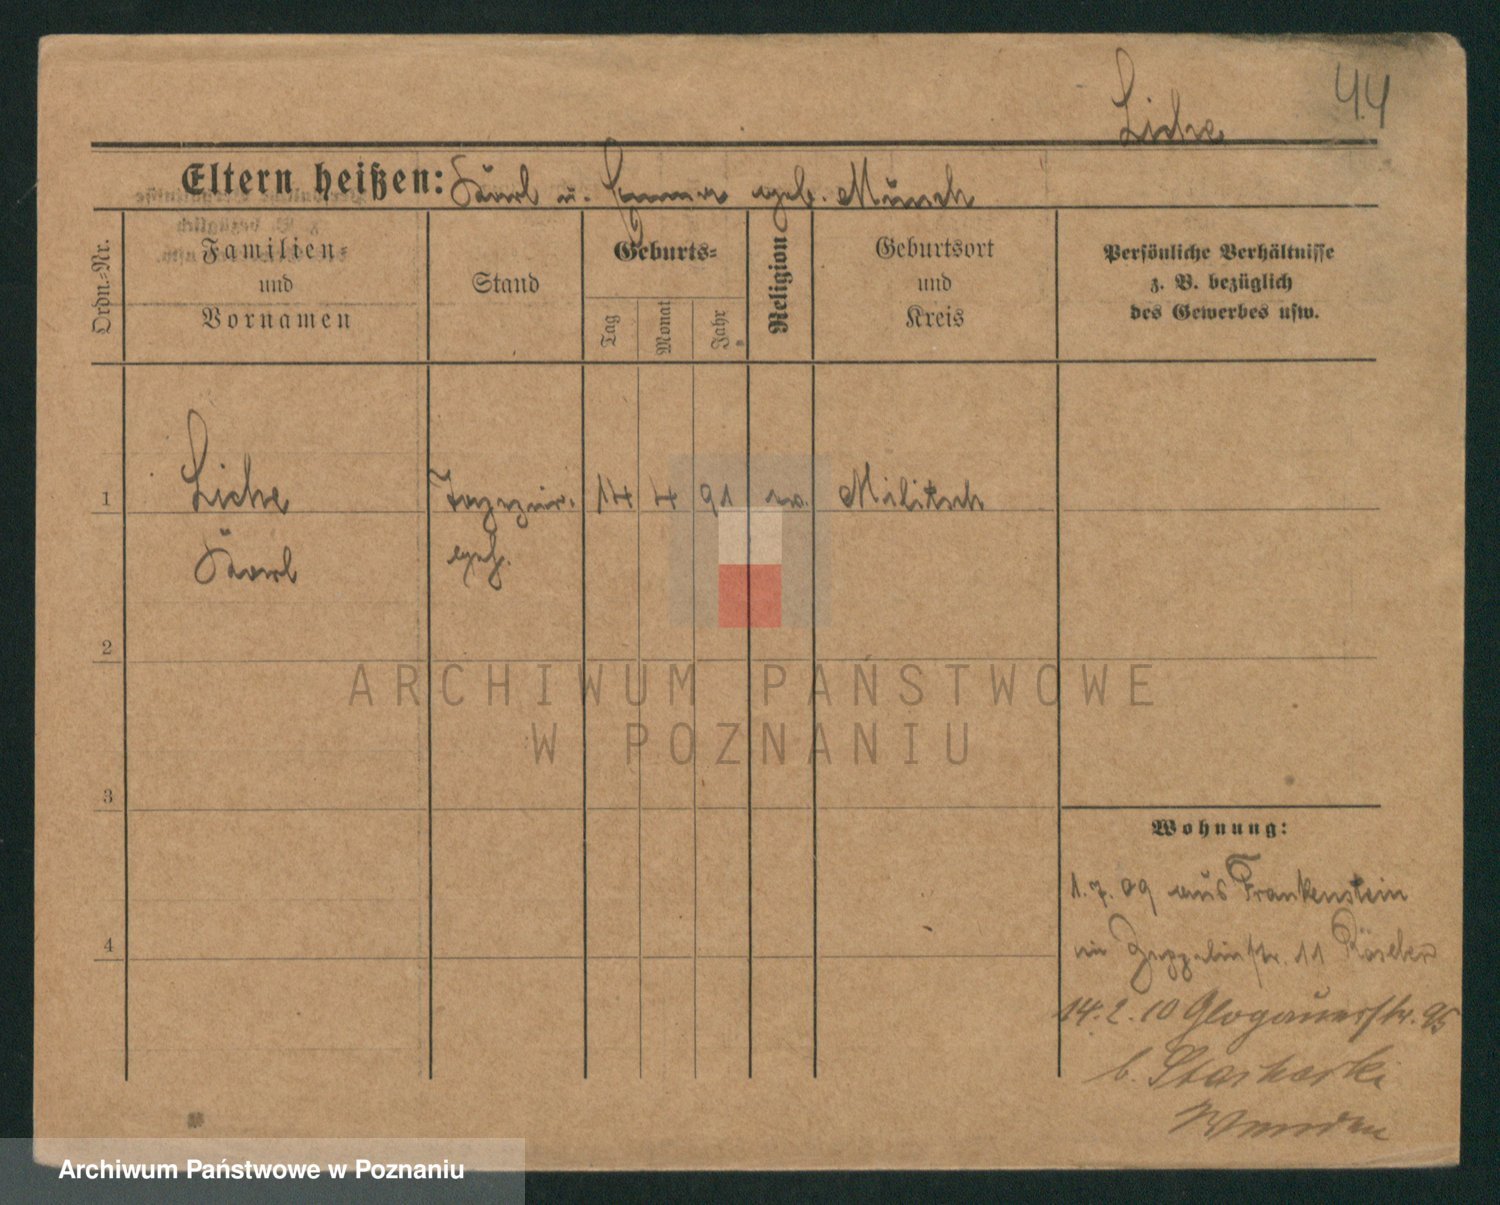 Liche
44
Eltern heißen: Karl u. geb. Münch
Ordn.-Nr.
Familien-
und
Vornamen
Stand
Geburts-
Tag
Monat
Jahr
Religion
Geburtsort
und
Kreis
Persönliche Verhältnisse
z. B. bezüglich
des Gewerbes usw.
1
Liche
14 4 91 ev. Militsch
Karl
2
3
4
ARCHIWUM PAŃSTWOWE
W POZNANIU
Wohnung:
1.7.09 aus Frankenstein
Zeppelinstr. 11
14.2.10 Glogauerstr. 95
b.
Archiwum Państwowe w Poznaniu